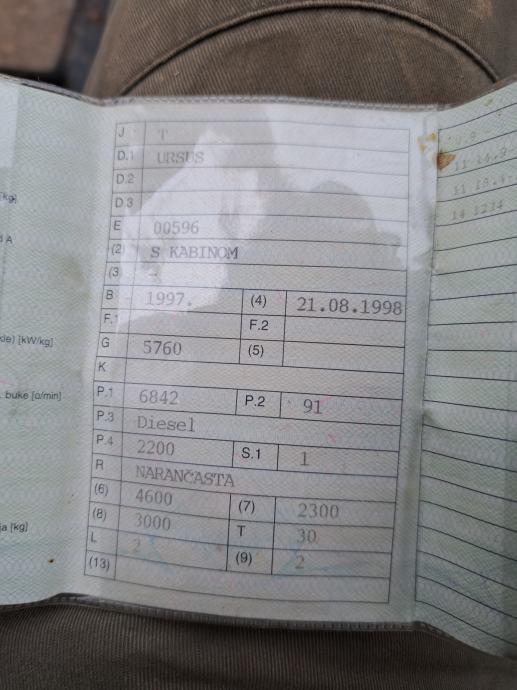 [kg]
J T
D.1 URSUS
D.2
D 3
E 00596
(2) S KABINOM
(3
B 1997. (4) 21.08.1998
F.1 F.2
G 5760 (5)
kle) [kW/kg]
K
P.1 6842 P.2 91
buke [o/min]
P.3 Diesel
P.4 2200 S.1 1
R NARANČASTA
(6) 4600 (7) 2300
(8) 3000 T 30
ja [kg]
L 2 (9) 2
(13)
14 1234